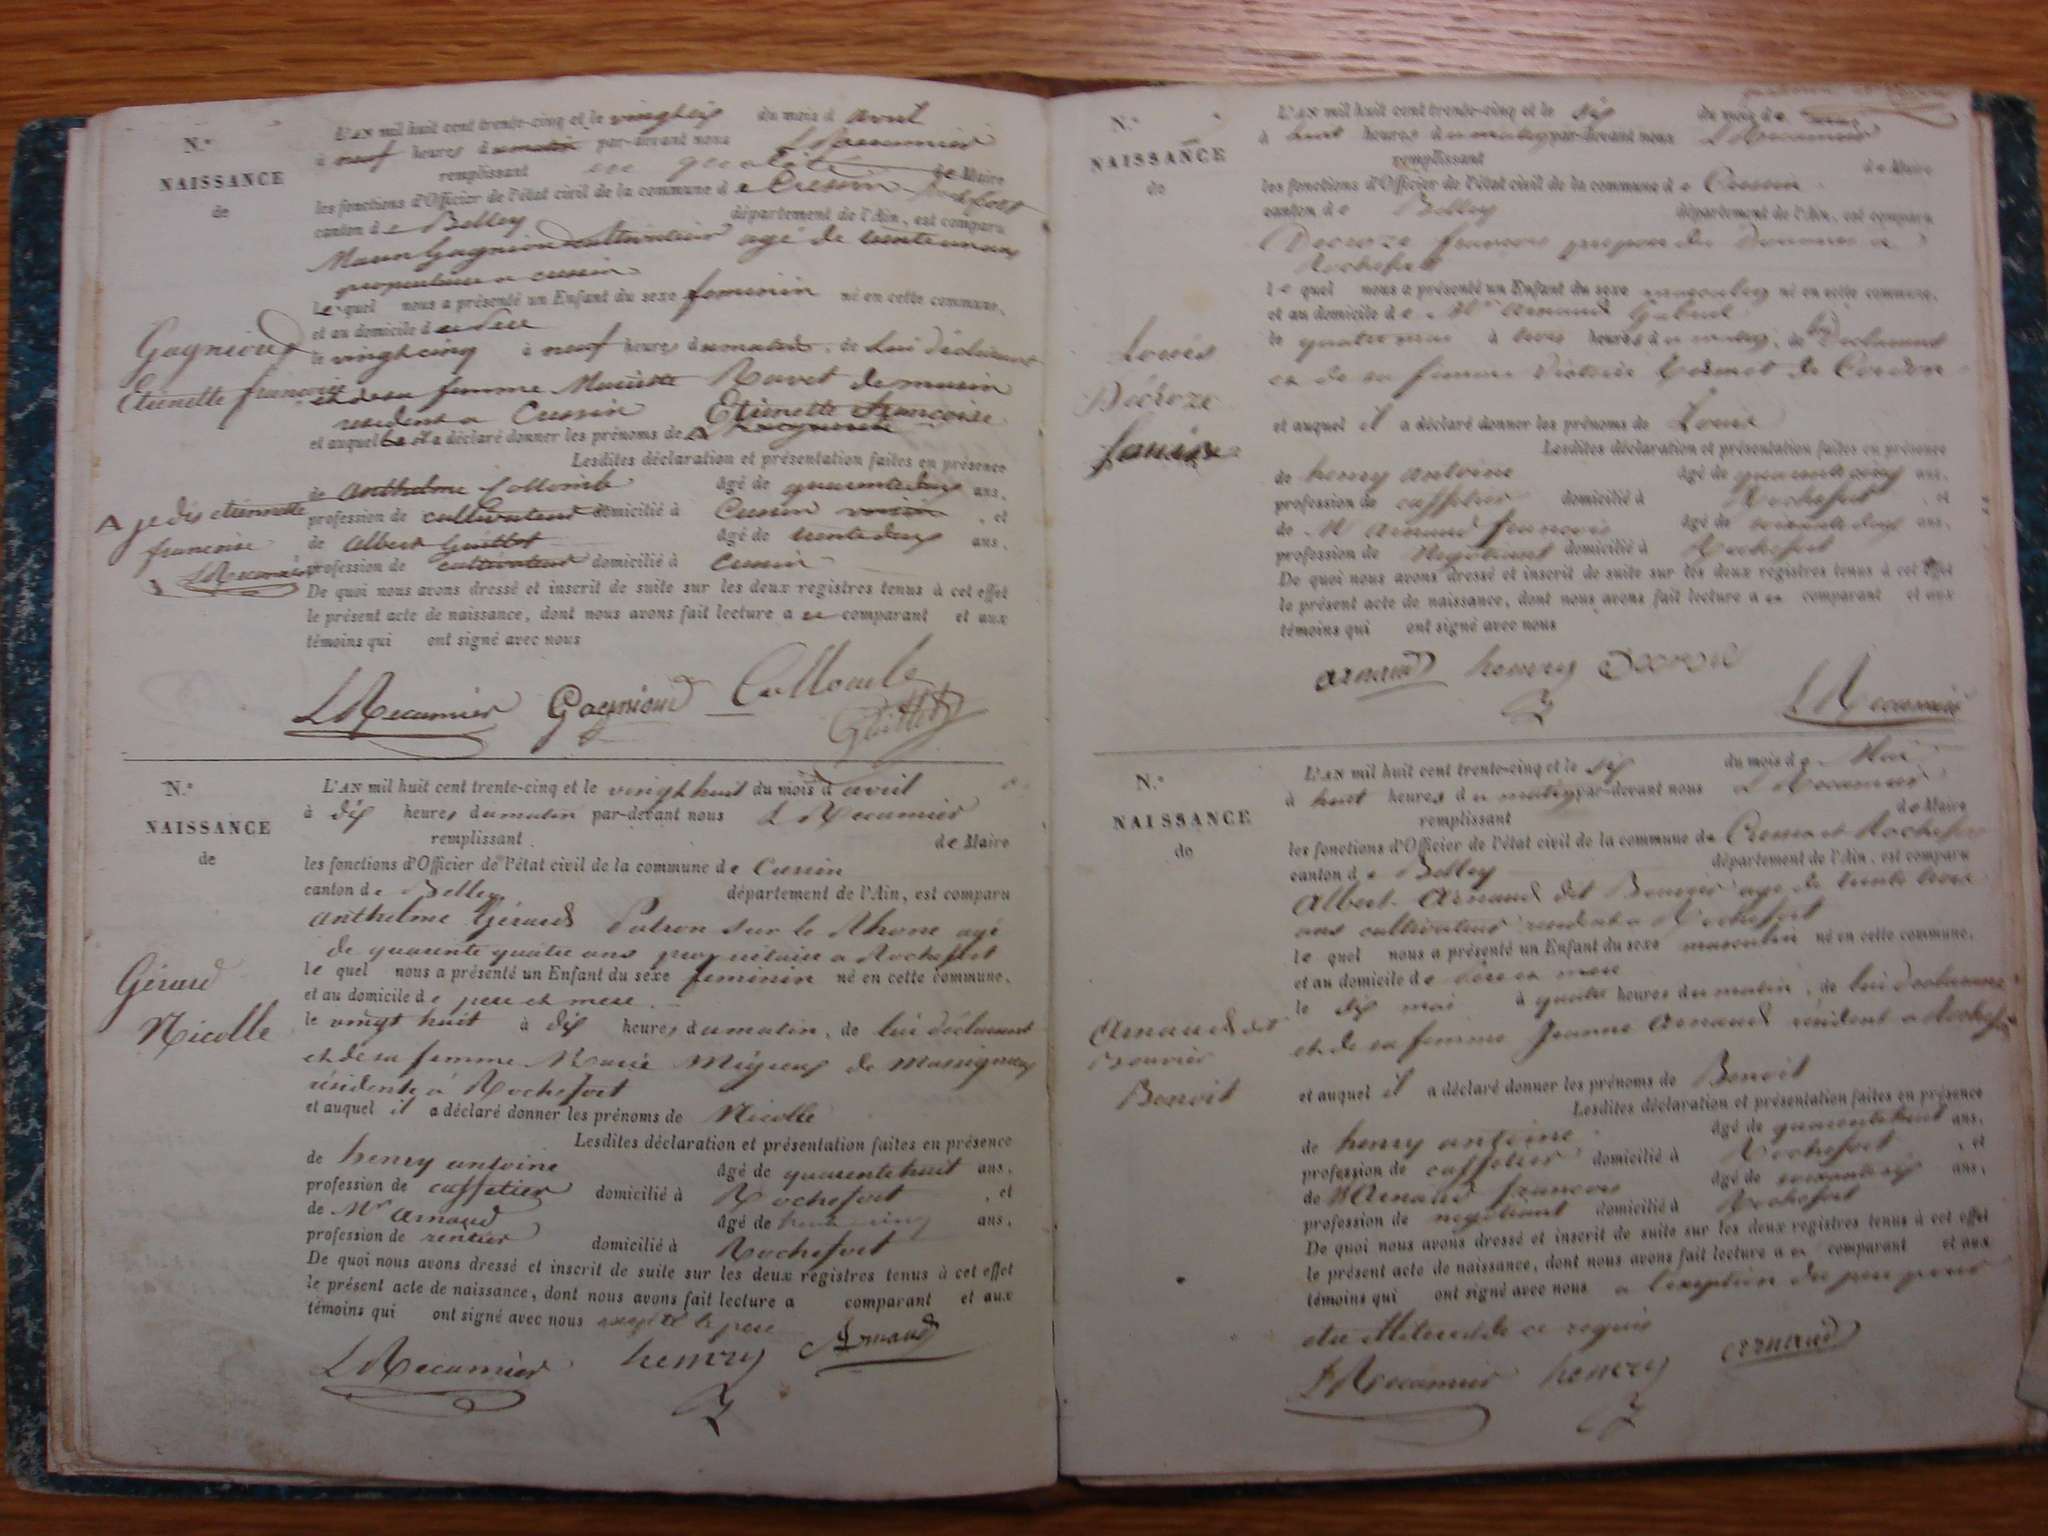 N.°
NAISSANCE
de
L'AN mil huit cent trente-cinq et le vingt six du mois d avril
à neuf heures du matin par-devant nous L Recamier
remplissant en qualité de Maire
les fonctions d'Officier de l'état civil de la commune de Cressin Rochefort
canton de Belley département de l'Ain, est comparu
Gagnioud cultivateur agé de trente un ans
propriétaire a cressin
Le quel nous a présenté un Enfant du sexe feminin né en cette commune,
et au domicile du
le vingt cinq à neuf heures du matin, de lui déclarant
et de sa femme Ravet de
resident a Cressin Etiennette françoise
et auquel il a déclaré donner les prénoms de
Lesdites déclaration et présentation faites en présence
de Anthelme Collombe âgé de quarente deux ans,
profession de cultivateur domicilié à Cressin , et
de Albert Guillot âgé de trente deux ans,
profession de cultivateur domicilié à Cressin
De quoi nous avons dressé et inscrit de suite sur les deux registres tenus à cet effet
le présent acte de naissance, dont nous avons fait lecture au comparant et aux
témoins qui ont signé avec nous
Gagnioud
Etiennette françoise
A je dis etiennette
francoise
L Recamier
L Recamier Gagnioud Collombe
Guillot
N.°
NAISSANCE
de
L'AN mil huit cent trente-cinq et le vingt huit du mois d avril
à dix heures du matin par-devant nous L Recamier
remplissant de Maire
les fonctions d'Officier de l'état civil de la commune de Cressin
canton de Belley département de l'Ain, est comparu
anthelme Gérard Patron sur le Rhone agé
de quarente quatre ans propriétaire a Rochefort
le quel nous a présenté un Enfant du sexe feminin né en cette commune,
et au domicile de pere et mere
le vingt huit à dix heures du matin, de lui déclarant
et de sa femme Marie de Massignieu
résidente à Rochefort
et auquel il a déclaré donner les prénoms de Nicolle
Lesdites déclaration et présentation faites en présence
de henry antoine âgé de quarente huit ans,
profession de caffetier domicilié à Rochefort , et
de Mr arnaud âgé de ans,
profession de rentier domicilié à Rochefort
De quoi nous avons dressé et inscrit de suite sur les deux registres tenus à cet effet
le présent acte de naissance, dont nous avons fait lecture a comparant et aux
témoins qui ont signé avec nous excepté le pere
Gérard
Nicolle
L Recamier henry Arnaud
N.°
NAISSANCE
de
L'AN mil huit cent trente-cinq et le six du mois de
à huit heures du matin par-devant nous L Recamier
remplissant de Maire
les fonctions d'Officier de l'état civil de la commune de Cressin
canton de Belley département de l'Ain, est comparu
Decroze francois preposé des Douanes a
Rochefort
le quel nous a présenté un Enfant du sexe masculin né en cette commune,
et au domicile de Mr Arnaud Gabriel
le quatre mai à trois heures du matin, de lui Declarant
et de sa femme de Cordon
et auquel il a déclaré donner les prénoms de Louis
Lesdites déclaration et présentation faites en présence
de henry antoine âgé de quarente cinq ans,
profession de caffetier domicilié à Rochefort , et
de Mr Arnaud francois âgé de ans,
profession de Negotiant domicilié à Rochefort
De quoi nous avons dressé et inscrit de suite sur les deux registres tenus à cet effet
le présent acte de naissance, dont nous avons fait lecture au comparant et aux
témoins qui ont signé avec nous
Louis
Décroze
Louis
arnaud henry Decroze
L Recamier
N.°
NAISSANCE
de
L'AN mil huit cent trente-cinq et le dix du mois de Mai
à huit heures du matin par-devant nous L Recamier
remplissant de Maire
les fonctions d'Officier de l'état civil de la commune de Cressin et Rochefort
canton de Belley département de l'Ain, est comparu
Albert Arnaud dit Bouvier agé de trente trois
ans cultivateur resident a Rochefort
le quel nous a présenté un Enfant du sexe masculin né en cette commune,
et au domicile de pere et mere
le dix mai à quatre heures du matin, de lui declarant
et de sa femme Jeanne Arnaud résident a Rochefort
et auquel il a déclaré donner les prénoms de Benoit
Lesdites déclaration et présentation faites en présence
de henry antoine âgé de quarente huit ans,
profession de caffetier domicilié à Rochefort , et
de Mr Arnaud francois âgé de ans,
profession de negotiant domicilié à Rochefort
De quoi nous avons dressé et inscrit de suite sur les deux registres tenus à cet effet
le présent acte de naissance, dont nous avons fait lecture au comparant et aux
témoins qui ont signé avec nous a l'exception du pere pour
de ce requis
Arnaud dit
Bouvier
Benoit
L Recamier henry arnaud